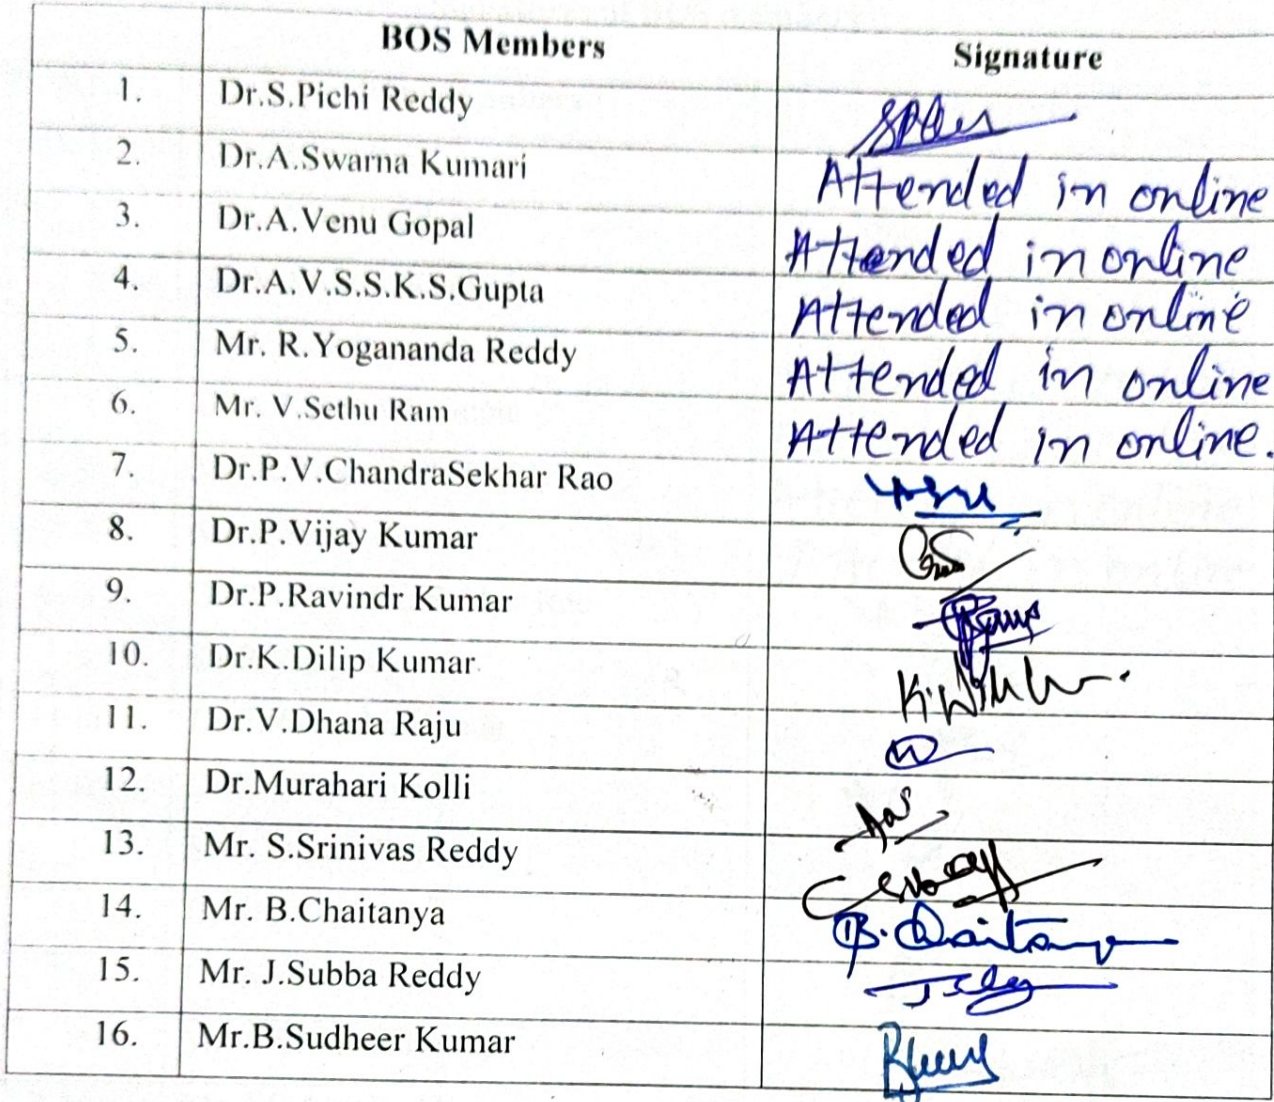 BOS Members Signature
1. Dr.S.Pichi Reddy
2. Dr.A.Swarna Kumari Attended in online
3. Dr.A.Venu Gopal Attended in online
4. Dr.A.V.S.S.K.S.Gupta Attended in online
5. Mr. R.Yogananda Reddy Attended in online
6. Mr. V.Sethu Ram Attended in online.
7. Dr.P.V.ChandraSekhar Rao
8. Dr.P.Vijay Kumar
9. Dr.P.Ravindr Kumar
10. Dr.K.Dilip Kumar
11. Dr.V.Dhana Raju
12. Dr.Murahari Kolli
13. Mr. S.Srinivas Reddy
14. Mr. B.Chaitanya B.Chaitanya
15. Mr. J.Subba Reddy
16. Mr.B.Sudheer Kumar